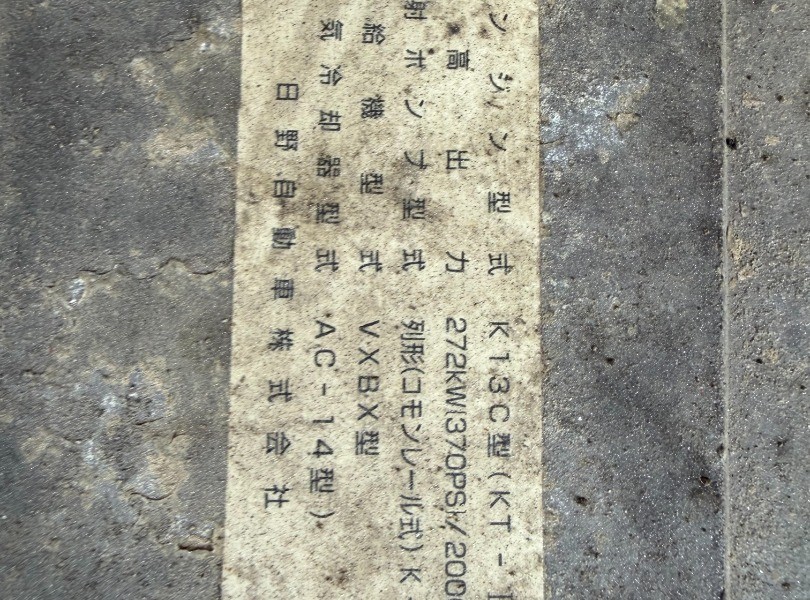 ンジン型式 K13C型(KT-I
高出力 272KW(370PS)/200
射ポンプ型式 列形(コモンレール式)K
給機型式 VXBX型
気冷却器型式 AC-14型)
日野自動車株式会社